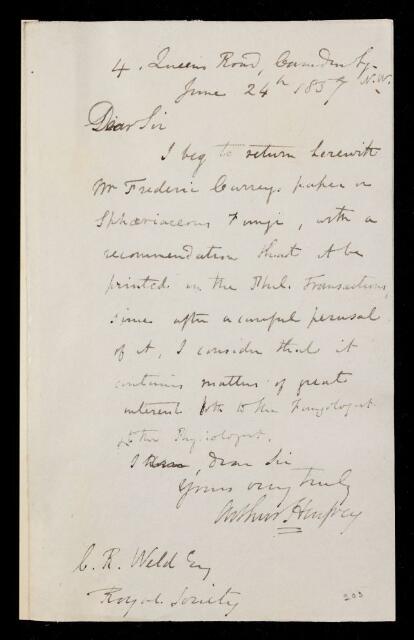 4. Queens Road, Camden Sq.
N.W.
June 24th 1857
Dear Sir
I beg to return herewith
Mr Frederic Currey's paper on
Sphæriaceous Fungi, with a
recommendation that it be
printed in the Phil. Transactions,
since after a careful perusal
of it, I consider that it
contains matter of great
interest both to the Fungologist
& the Physiologist.
I am, dear Sir
Yours very truly
Arthur Henfrey
C. R. Weld Esq
Royal Society
203